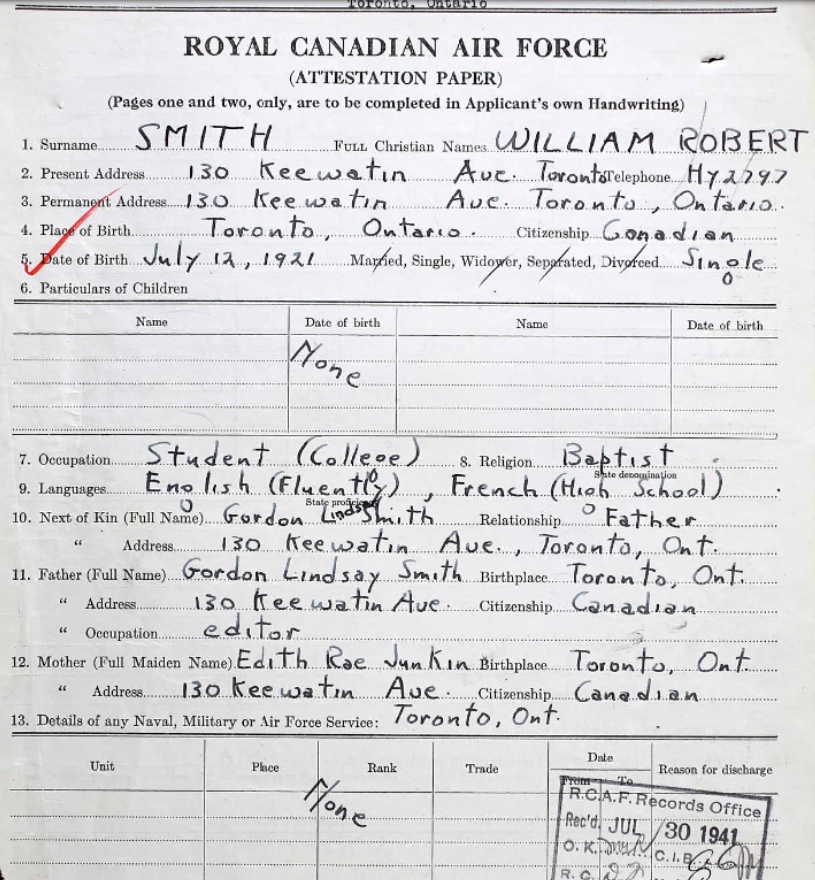 Toronto, Ontario
ROYAL CANADIAN AIR FORCE
(ATTESTATION PAPER)
(Pages one and two, only, are to be completed in Applicant's own Handwriting)
1. Surname SMITH FULL Christian Names WILLIAM ROBERT
2. Present Address 130 Keewatin Ave. Toronto Telephone Hy 2797
3. Permanent Address 130 Keewatin Ave. Toronto, Ontario.
4. Place of Birth Toronto, Ontario. Citizenship Canadian
5. Date of Birth July 12, 1921 Married, Single, Widower, Separated, Divorced Single
6. Particulars of Children
Name Date of birth Name Date of birth
None
7. Occupation Student (College) 8. Religion Baptist
State denomination
9. Languages English (Fluently), French (High School)
State proficiency
10. Next of Kin (Full Name) Gordon Lindsay Smith Relationship Father
" Address 130 Keewatin Ave., Toronto, Ont.
11. Father (Full Name) Gordon Lindsay Smith Birthplace Toronto, Ont.
" Address 130 Keewatin Ave. Citizenship Canadian
" Occupation editor
12. Mother (Full Maiden Name) Edith Rae Junkin Birthplace Toronto, Ont.
" Address 130 Keewatin Ave. Citizenship Canadian
13. Details of any Naval, Military or Air Force Service: Toronto, Ont.
Unit Place Rank Trade Date Reason for discharge
From To
None
R.C.A.F. Records Office
Rec'd. JUL 30 1941
O.K. C.I.B.
R.C.